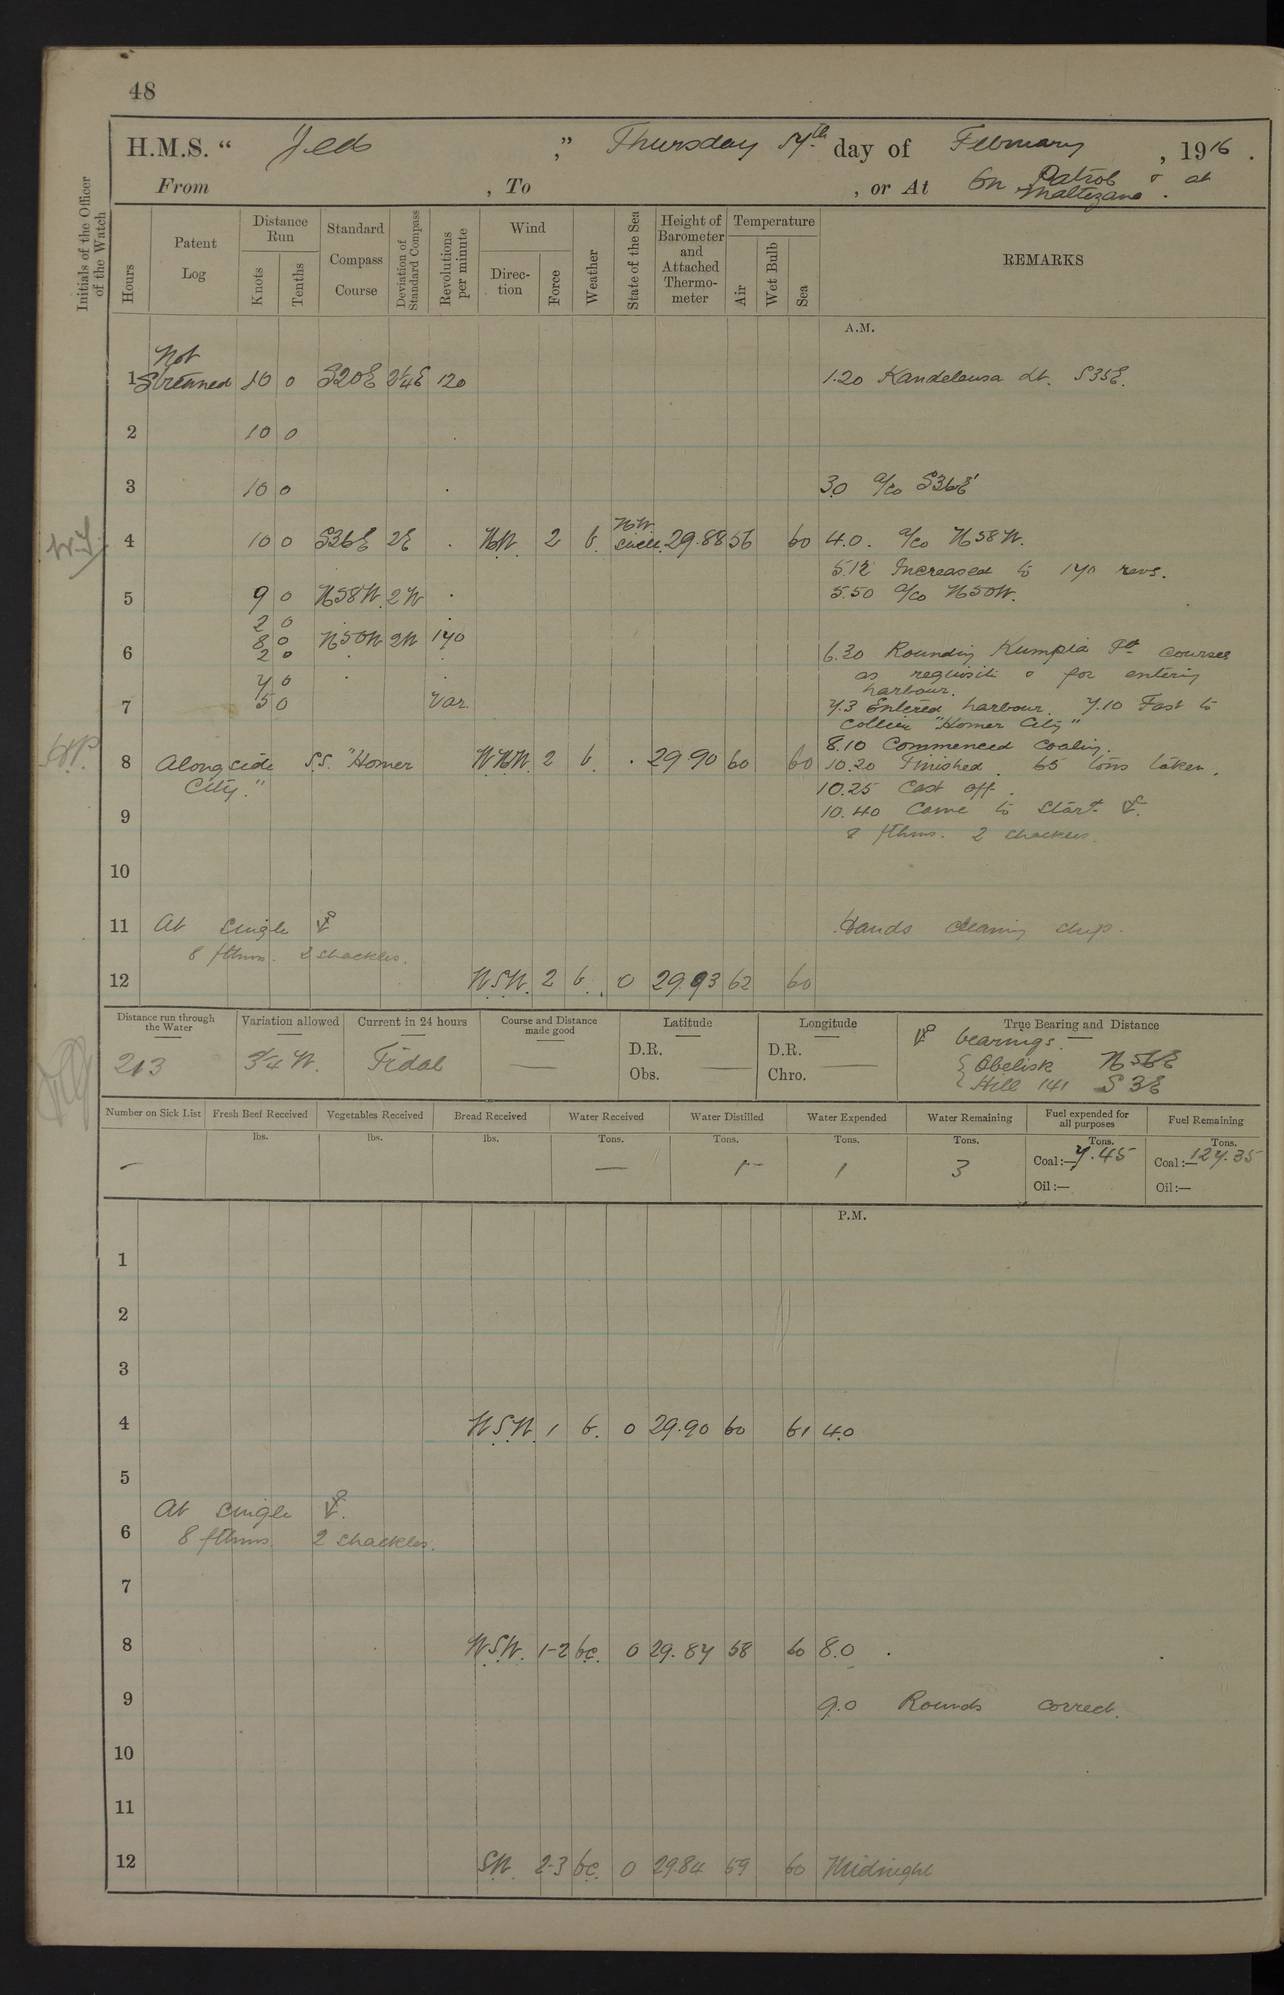 48
H.M.S. " Jed ," Thursday 17th day of February , 1916 .
From , To , or At On Patrol & at
Maltezana .
Initials of the Officer of the Watch
Hours
Patent Log
Distance Run
Knots
Tenths
Standard Compass Course
Deviation of Standard Compass
Revolutions per minute
Wind
Direction
Force
Weather
State of the Sea
Height of Barometer and Attached Thermometer
Temperature
Air
Wet Bulb
Sea
REMARKS
A.M.
Not
1 Streamed 10 0 S20E 2¼E 120 1.20 Kandeleusa Lt. S35E.
2 10 0
3 10 0 3.0 a/co S36E
4 10 0 S36E 2E NW. 2 b. NW. Swell. 29.88 56 60 4.0. a/co N58W.
5.12 Increased to 170 revs.
5 9 0 N58W. 2W 5.50 a/co N50W.
2 0
8 0 N50W 2W 170
6 2 0 6.30 Rounding Kumpia Pt courses
7 0 as requisite & for entering
harbour.
7 5 0 Var. 7.3 Entered harbour. 7.10 Fast to
Collier "Homer City"
8.10 Commenced Coaling.
8 Alongside S.S. "Homer W.N.W. 2 b. 29.90 60 60 10.20 Finished. 65 tons taken.
City." 10.25 Cast off.
9 10.40 Came to Starb
8 fthms. 2 shackles.
10
11 At Single ⚓ Hands cleaning ship.
8 fthms. 2 shackles.
12 W.S.W. 2 b. 0 29.93 62 60
Distance run through the Water
213
Variation allowed
3¾ W.
Current in 24 hours
Tidal
Course and Distance made good
—
Latitude
D.R.
Obs. —
Longitude
D.R.
Chro. —
True Bearing and Distance
⚓ bearings.
Obelisk N56E
Hill 141 S 3E
Number on Sick List
—
Fresh Beef Received
lbs.
Vegetables Received
lbs.
Bread Received
lbs.
Water Received
Tons.
—
Water Distilled
Tons.
Water Expended
Tons.
1
Water Remaining
Tons.
3
Fuel expended for all purposes
Tons.
Coal:— 7.45
Oil:—
Fuel Remaining
Tons.
Coal:— 127.35
Oil:—
P.M.
1
2
3
4 W.S.W. 1 b. 0 29.90 60 61 4.0
5
At single ⚓.
6 8 fthms. 2 shackles.
7
8 W.S.W. 1-2 bc. 0 29.87 58 60 8.0
9 9.0 Rounds correct.
10
11
12 S.W. 2-3 bc. 0 29.84 59 60 Midnight